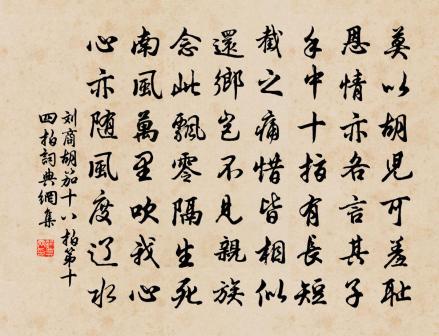 莫以胡兒可羞耻
恩情亦各言其子
手中十指有長短
截之痛惜皆相似
還鄉豈不見親族
念此飄零隔生死
南風萬里吹我心
心亦随風度辽水
刘商胡笳十八拍第十
四拍詞典網集